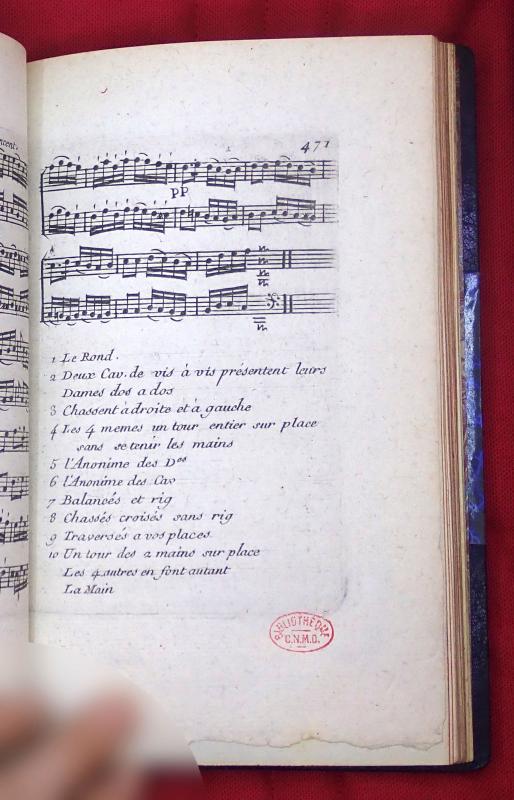 471
pp
1 Le Rond.
2 Deux Cav. de vis à vis présentent leurs
Dames dos a dos
3 Chassent à droite et à gauche
4 Les 4 memes un tour entier sur place
sans se tenir les mains
5 l'Anonime des D.es
6 l'Anonime des Cav
7 Balancés et rig
8 Chassés croisés sans rig
9 Traversés a vos places
10 Un tour des 2 mains sur place
Les 4 autres en font autant
La Main
BIBLIOTHÈQUE
C.N.M.D.